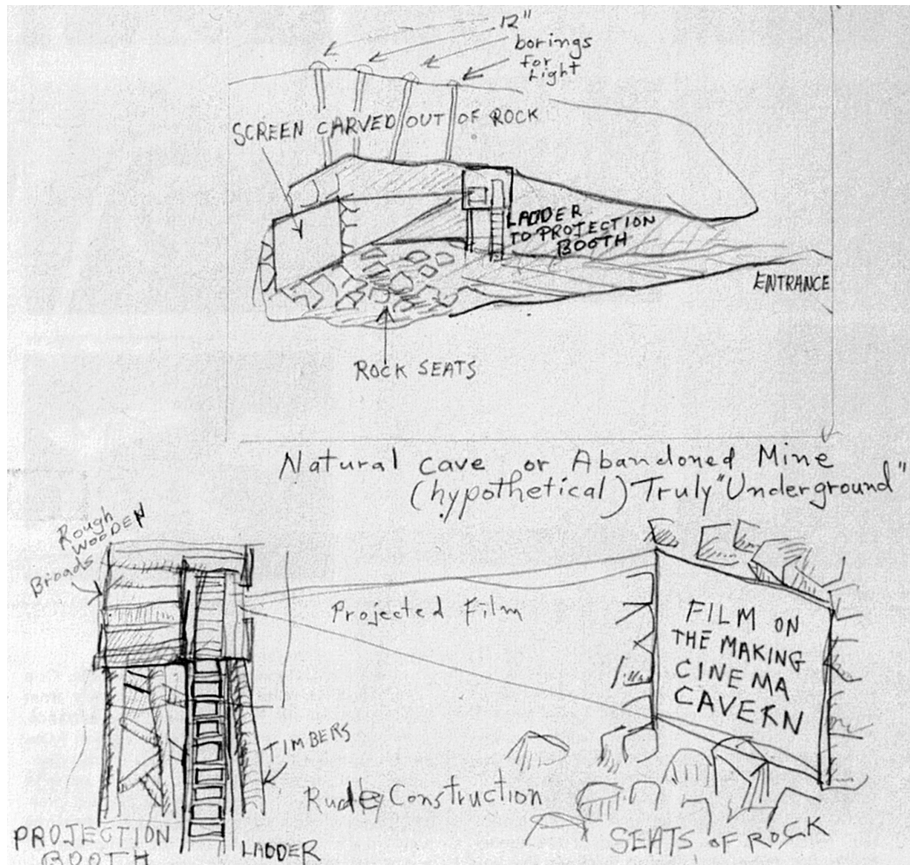 12"
borings
for
Light
SCREEN CARVED OUT OF ROCK
LADDER
TO PROJECTION
BOOTH
ENTRANCE
ROCK SEATS
Natural Cave or Abandoned Mine
(hypothetical) Truly "Underground"
Rough
WOODEN
Broads
Projected Film
FILM ON
THE MAKING
CINEMA
CAVERN
TIMBERS
Rude Construction
PROJECTION
BOOTH
LADDER
SEATS OF ROCK